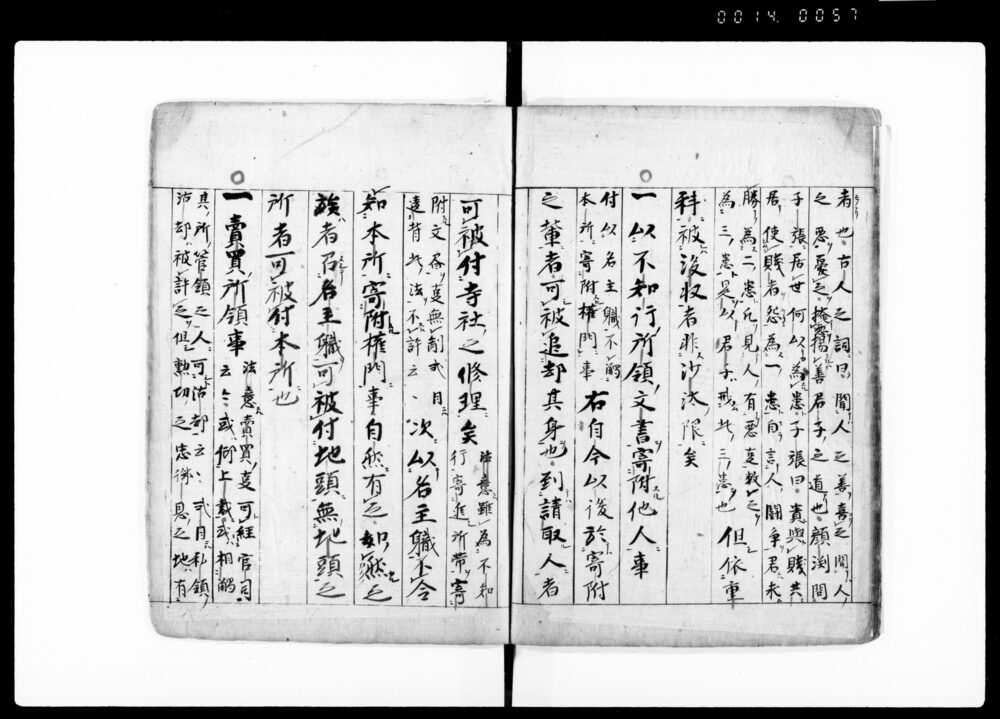 0014.0057
者也古人之詞曰聞人之善喜之聞人
之悪憂之掩悪揚善君子之道也顔渕問
子張居世何以為患子張曰貴與賤共
居使賤者怨為一患自言人闘争君未
勝為二患凡見人有悪更教之
為三患是以君子戒此三患也 但依重
科被没収者非沙汰限矣
一以不知行所領文書寄附他人事
付以名主職不觸
本所寄附権門事 右自今以後於寄附
之輩者可被追却其身也到請取人者
可被付寺社之修理矣 法意雖為不知
行寄進所帯寄
附文
違背此法不許云々 次以名主職不令
知本所寄附権門事自然有之如然之
族者召名主職可被付地頭無地頭之
所者可被付本所也
一賣買所領事 法意賣買
可經官司
云々或
相觸
其所管領之人可沽却云々 私領
沽却被許之但勲功之忠 恩之地有